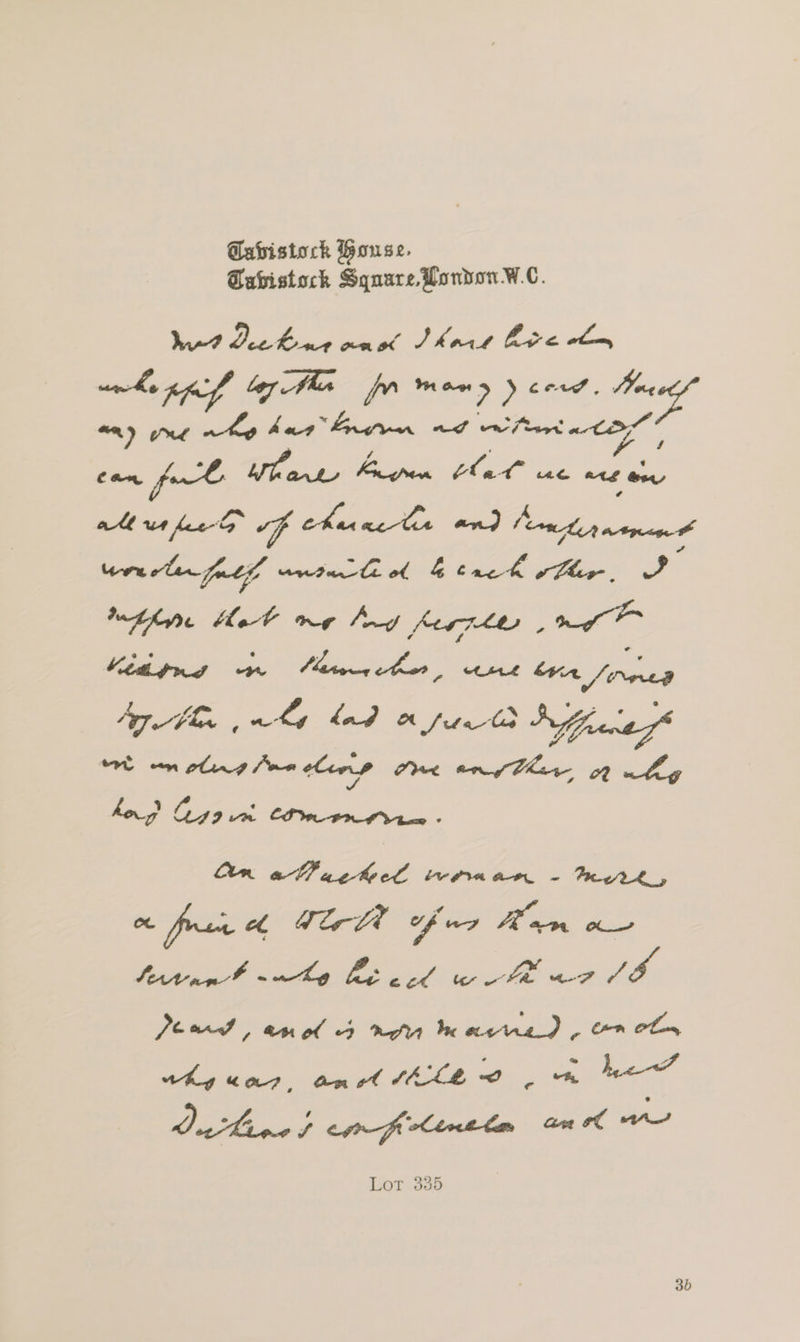 Tavistock House,
Tavistock Square, London. W.C.
Mrs Dickens and I have lived
unhappily together for many years. Hardly
any one who has known us intimately
can fail to have known that we are in
all respects of character and temperament
wonderfully unsuited to each other. I
suppose that no two people, not
vicious in themselves, ever were joined
together, who had a greater difficulty
in understanding one another, or who
had less in common.
An attached woman - more
a friend to both of us than a
servant - who lived with us 16
years, and is now married, and
who was, and still is, in Mrs
Dickens's confidence and in
LOT 335
35